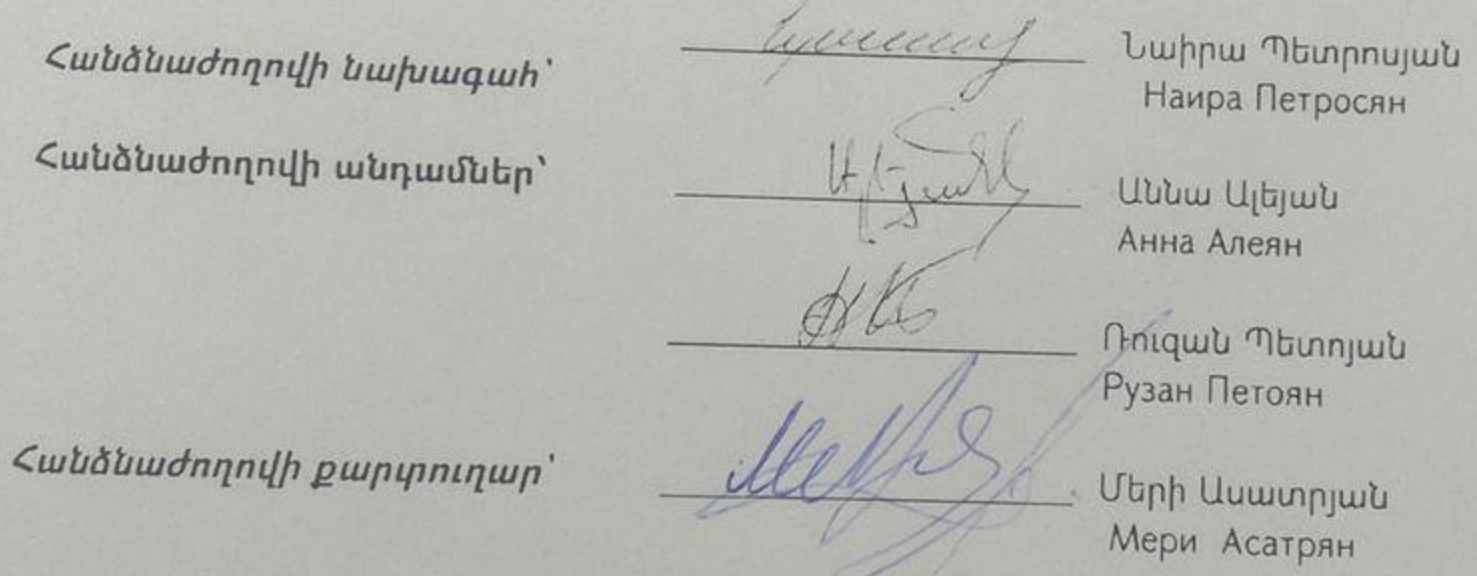 Հանձնաժողովի նախագահ՝
Նաիրա Պետրոսյան
Наира Петросян
Հանձնաժողովի անդամներ՝
Աննա Ալեյան
Анна Алеян
Ռուզան Պետոյան
Рузан Петоян
Հանձնաժողովի քարտուղար՝
Մերի Ասատրյան
Мери Асатрян